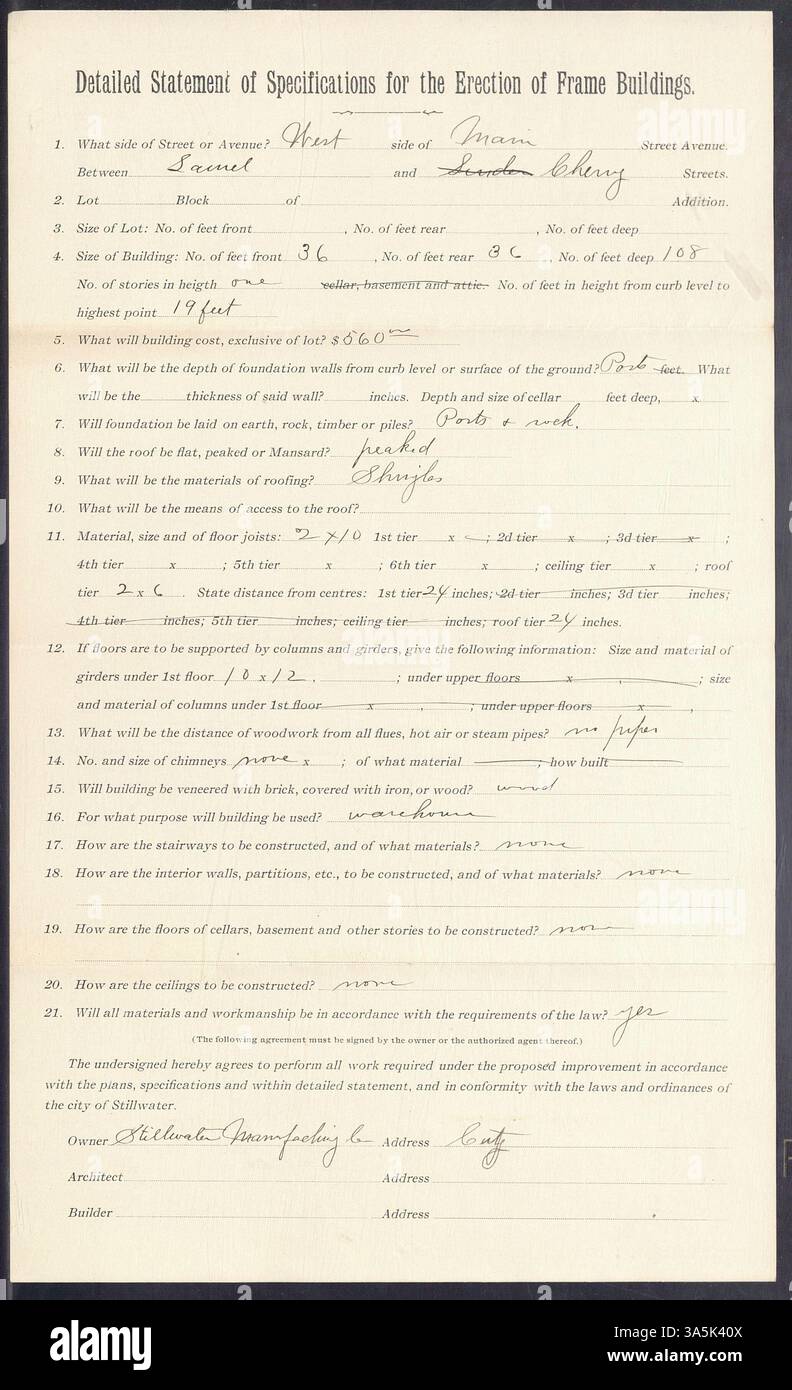 Detailed Statement of Specifications for the Erection of Frame Buildings.
1. What side of Street or Avenue? West side of Main Street Avenue.
Between Laurel and Cherry Streets.
2. Lot Block of Addition.
3. Size of Lot: No. of feet front , No. of feet rear , No. of feet deep
4. Size of Building: No. of feet front 36 , No. of feet rear 36 , No. of feet deep 108
No. of stories in heigth one cellar, basement and attic. No. of feet in height from curb level to
highest point 19 feet
5. What will building cost, exclusive of lot? $560 00
6. What will be the depth of foundation walls from curb level or surface of the ground? Posts feet. What
will be the thickness of said wall? inches. Depth and size of cellar feet deep, x
7. Will foundation be laid on earth, rock, timber or piles? Posts & rock.
8. Will the roof be flat, peaked or Mansard? peaked
9. What will be the materials of roofing? Shingles
10. What will be the means of access to the roof?
11. Material, size and of floor joists: 2 x 10 1st tier x ; 2d tier x ; 3d tier x ;
4th tier x ; 5th tier x ; 6th tier x ; ceiling tier x ; roof
tier 2 x 6 . State distance from centres: 1st tier 24 inches; 2d tier inches; 3d tier inches;
4th tier inches; 5th tier inches; ceiling tier inches; roof tier 24 inches.
12. If floors are to be supported by columns and girders, give the following information: Size and material of
girders under 1st floor 10 x 12 , ; under upper floors x , ; size
and material of columns under 1st floor x , ; under upper floors x ,
13. What will be the distance of woodwork from all flues, hot air or steam pipes? no pipes
14. No. and size of chimneys none x ; of what material ; how built
15. Will building be veneered with brick, covered with iron, or wood? wood
16. For what purpose will building be used? warehouse
17. How are the stairways to be constructed, and of what materials? none
18. How are the interior walls, partitions, etc., to be constructed, and of what materials? none
19. How are the floors of cellars, basement and other stories to be constructed? none
20. How are the ceilings to be constructed? none
21. Will all materials and workmanship be in accordance with the requirements of the law? yes
(The following agreement must be signed by the owner or the authorized agent thereof.)
The undersigned hereby agrees to perform all work required under the proposed improvement in accordance
with the plans, specifications and within detailed statement, and in conformity with the laws and ordinances of
the city of Stillwater.
Owner Stillwater Manufacting Co Address City
Architect Address
Builder Address
alamy
Image ID: 3A5K40X
www.alamy.com